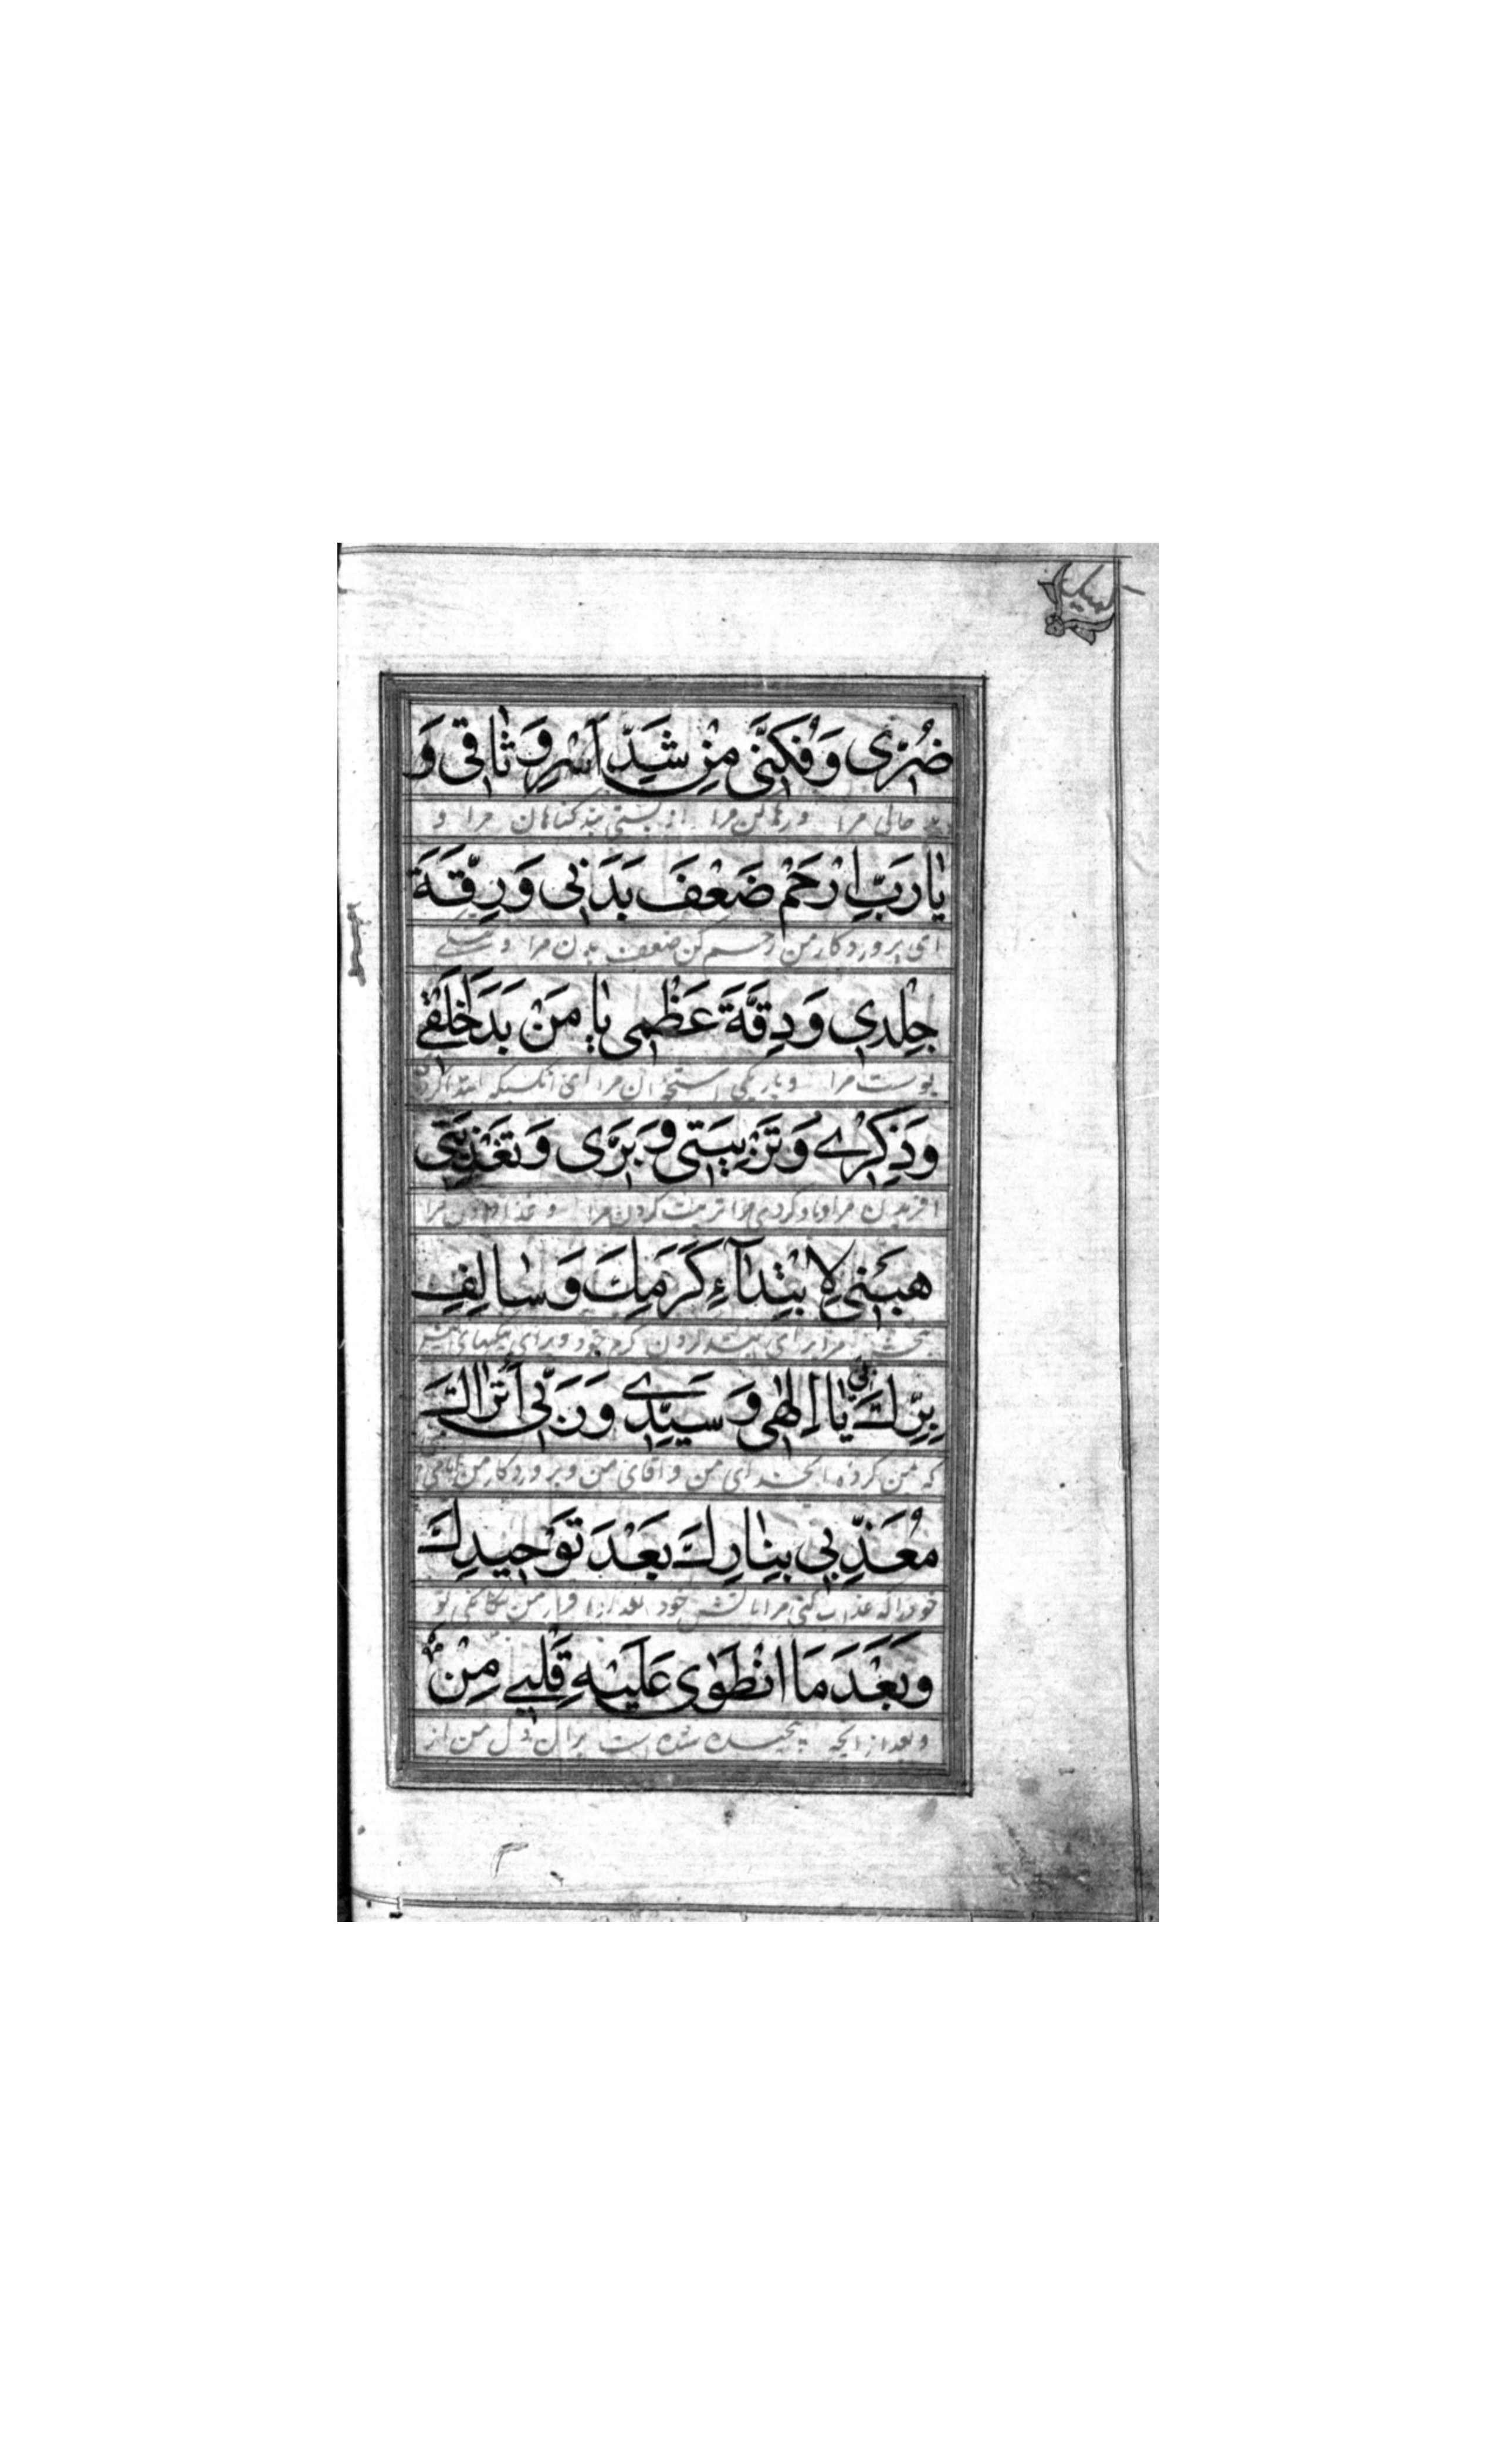 ضُرّی وَفُکَّنی مِنْ شَدِّ اَسْرِ وَثاقی وَ
بد حالی مرا و رها کن مرا از بستی بند کناهان مرا و
یا رَبِّ ارْحَمْ ضَعْفَ بَدَنی وَرِقَّةَ
ای پروردکار من رحم کن ضعف بدن مرا و تنکی
جِلْدی وَدِقَّةَ عَظْمی یا مَنْ بَدَءَ خَلْقی
پوست مرا و باریکی استخوان مرا ای آنکسیکه ابتدا کردی
وَذِکْری وَتَرْبِیَتی وَبِرّی وَتَغْذِیَتی
افریدن مرا و یاد کردن مرا تربیت کردن مرا و غذا دادن مرا
هَبْنی لِابْتِدآءِ کَرَمِکَ وَسالِفِ
ببخش مرا برای ابتدا کردن کرم خود و برای نیکیهای پیش
بِرِّکَ بی یا اِلهی وَسَیِّدی وَرَبّی أَتُراکَ
که بمن کرده ایخدای من و آقای من و پروردکار من ایا می
مُعَذِّبی بِنارِکَ بَعْدَ تَوْحیدِکَ
خود را که عذاب کنی مرا باتش خود بعد از اقرار من بیکانکی تو
وَبَعْدَ مَا انْطَوی عَلَیْهِ قَلْبی مِنْ
و بعد از انچه پیچیده شده است بران دل من از